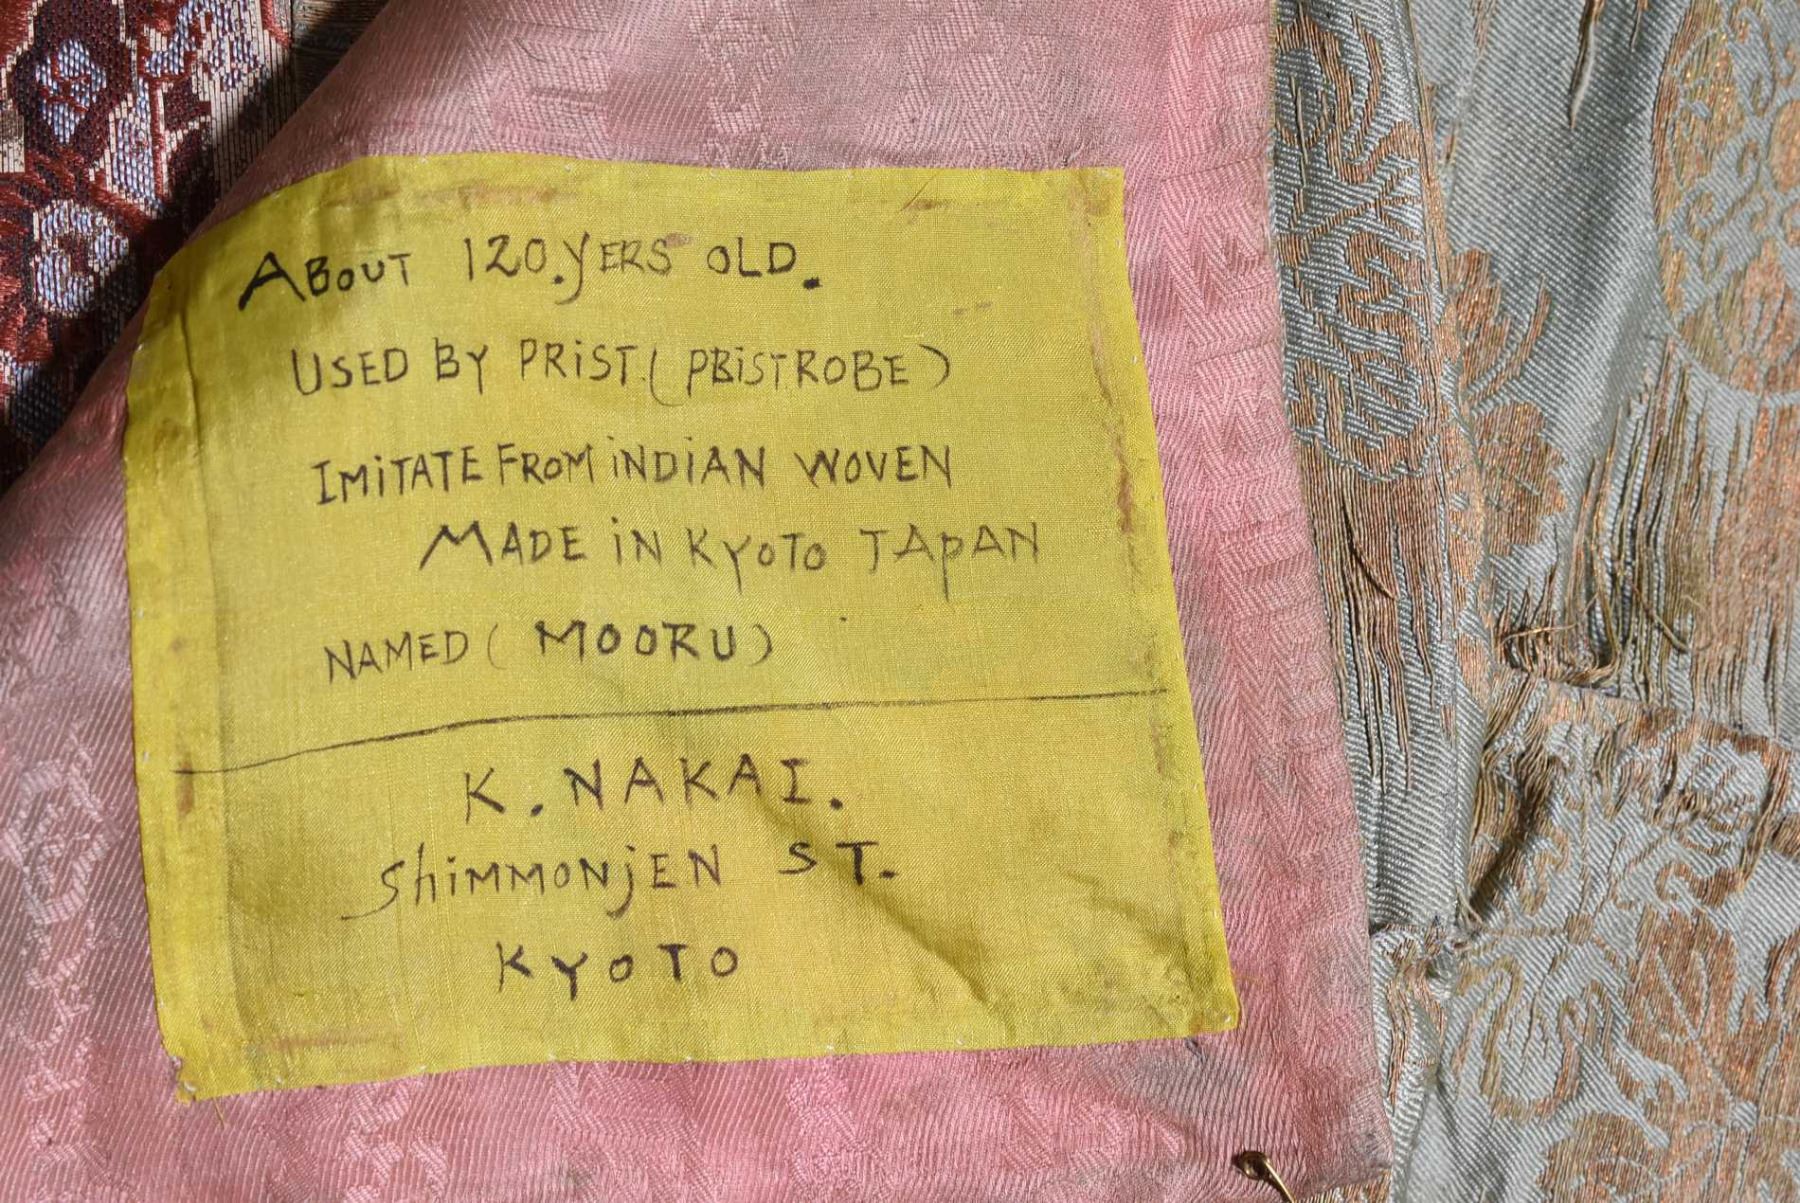 ABOUT 120.YERS OLD.
USED BY PRIST.(PBIST.ROBE)
IMiTATE FROM iNDiAN WOVEN
MADE iN KYOTO JAPAN
NAMED (MOORU)
K. NAKAI.
ShiMMONjEN ST.
KYOTO